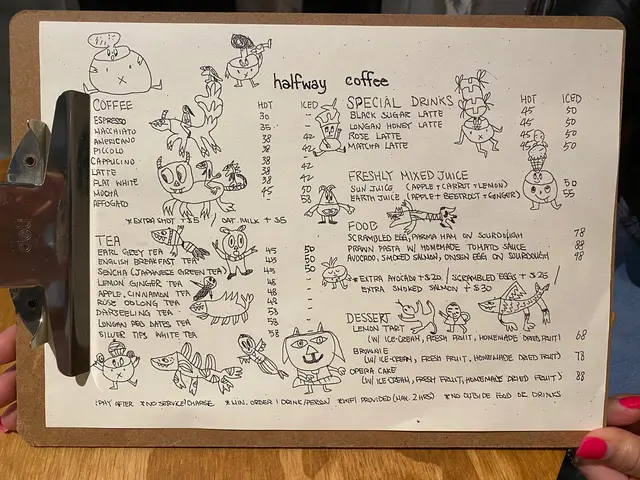 halfway coffee
COFFEE HOT ICED
ESPRESSO 30 -
MACCHIATO 35 -
AMERICANO 38 42
PICCOLO 38 -
CAPPUCINO 38 42
LATTE 38 42
FLAT WHITE 38
MOCHA 45
AFFOGATO
*EXTRA SHOT +$5 OAT MILK +$5
TEA
EARL GREY TEA 45 50
ENGLISH BREAKFAST TEA 45 50
SENCHA (JAPANESE GREEN TEA) 45 50
LEMON GINGER TEA 48 -
APPLE, CINNAMON TEA 48 -
ROSE OOLONG TEA 48 -
DARJEELING TEA 53 -
LONGAN RED DATES TEA 58 -
SILVER TIPS WHITE TEA 58 -
SPECIAL DRINKS HOT ICED
BLACK SUGAR LATTE 45 50
LONGAN HONEY LATTE 45 50
ROSE LATTE 45 50
MATCHA LATTE 45 50
FRESHLY MIXED JUICE
SUN JUICE (APPLE+CARROT+LEMON) 50
EARTH JUICE (APPLE+BEETROOT+GINGER) 55
FOOD
SCRAMBLED EGG, PARMA HAM ON SOURDOUGH 78
PRAWN PASTA W/ HOMEMADE TOMATO SAUCE 88
AVOCADO, SMOKED SALMON, ONSEN EGG ON SOURDOUGH 98
*EXTRA AVOCADO +$20 / SCRAMBLED EGGS +$25 /
EXTRA SMOKED SALMON +$30
DESSERT
LEMON TART
(W/ ICE-CREAM, FRESH FRUIT, HOMEMADE DRIED FRUIT) 68
BROWNIE
(W/ ICE-CREAM, FRESH FRUIT, HOMEMADE DRIED FRUIT) 78
OPERA CAKE
(W/ ICE-CREAM, FRESH FRUIT, HOMEMADE DRIED FRUIT) 88
*PAY AFTER *NO SERVICE CHARGE *MIN. ORDER 1 DRINK/PERSON *WIFI PROVIDED (MAX. 2HRS) *NO OUTSIDE FOOD OR DRINKS
deli